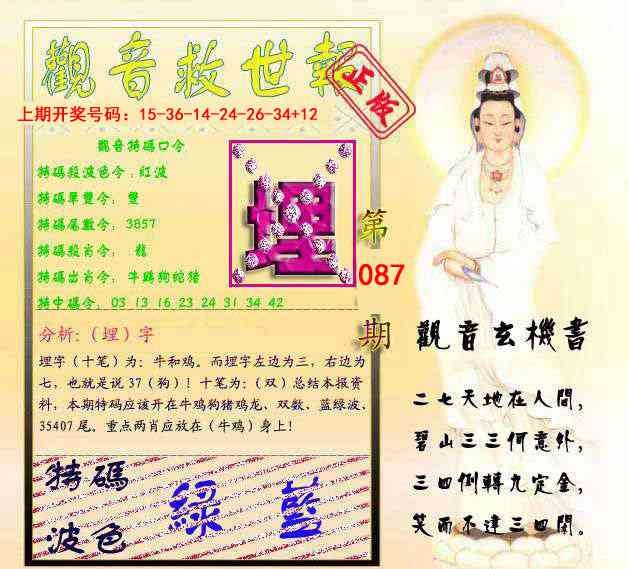 觀音救世報
正版
上期开奖号码：15-36-14-24-26-34+12
觀音特碼口令
特碼殺波色令：红波
特碼單雙令：雙
特碼尾數令：3857
特碼殺肖令：龍
特碼出肖令：牛鷄狗蛇猪
特中碼令：03 13 16 23 24 31 34 42
埋
第
087
期
分析:（埋）字
埋字（十笔）为：牛和鸡。而埋字左边为三，右边为
七，也就是说 37（狗）！十笔为：（双）总结本报资
料，本期特码应该开在牛鸡狗猪鸡龙、双数、蓝绿波、
35407 尾。重点两肖应放在（牛鸡）身上！
特碼
波色
綠 藍
觀音玄機書
二七天地在人間，
碧山三三何意外，
三四倒轉九定金，
笑而不達三四閑。